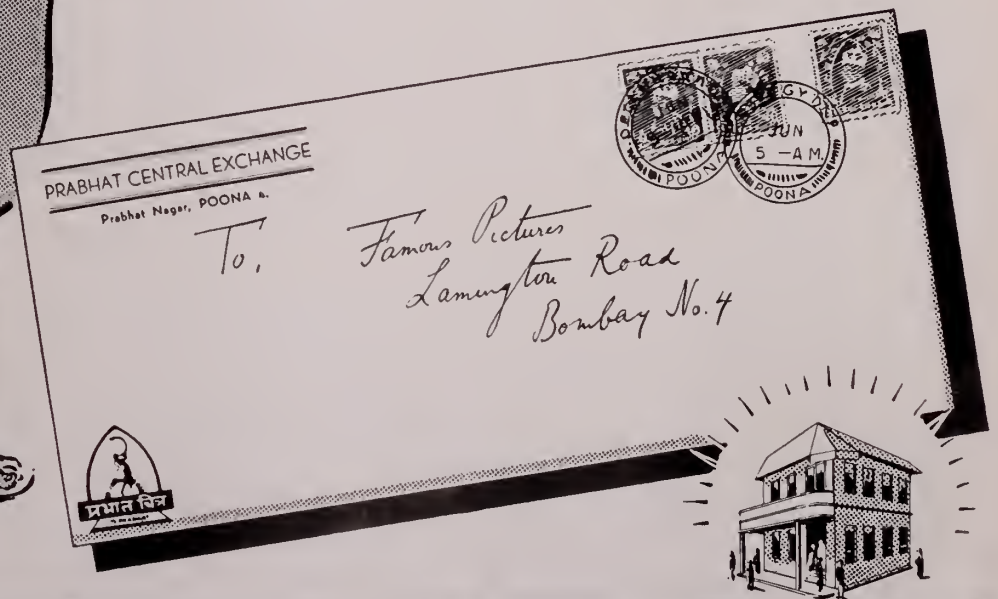 PRABHAT CENTRAL EXCHANGE
Prabhat Nagar, POONA 4.
To,
Famous Pictures
Lamington Road
Bombay No. 4
POONA
JUN
5 - A M.
POONA
प्रभात चित्र